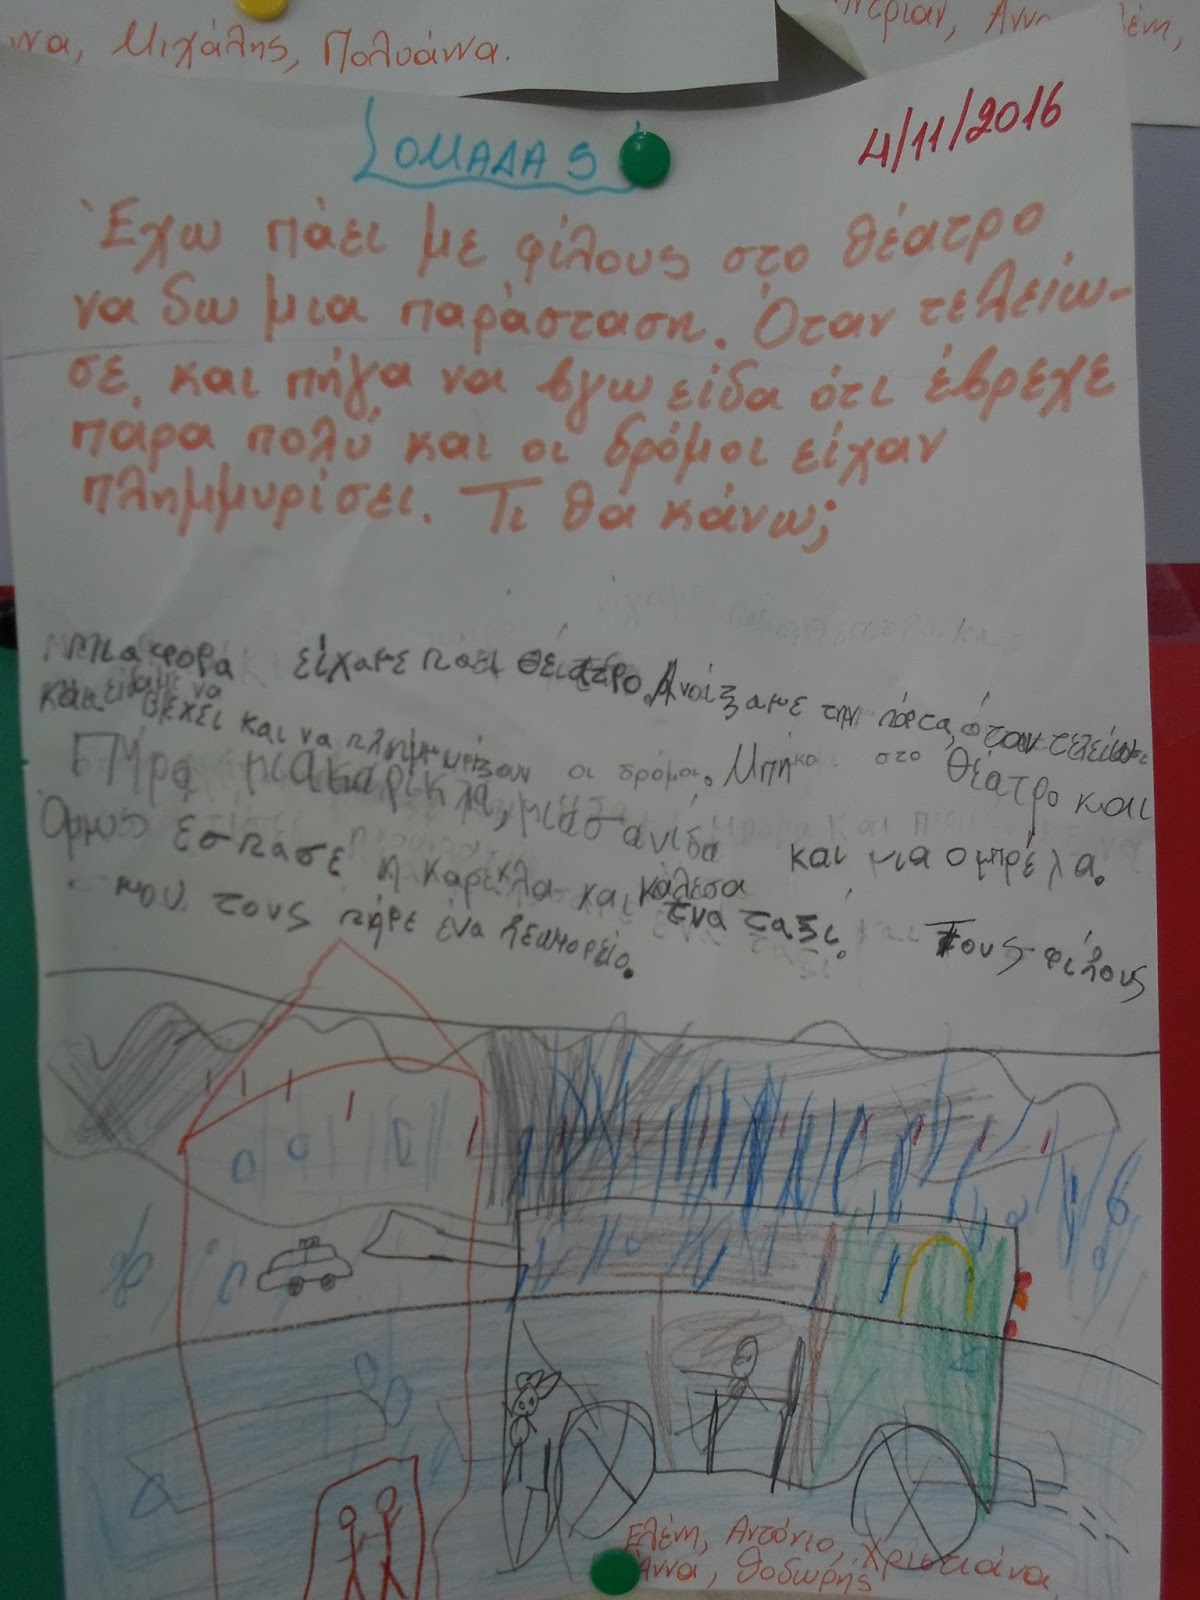 ννα, Μιχάλης, Πολυάννα.
Άνν
λένη,
ΟΜΑΔΑ 5
4/11/2016
Έχω πάει με φίλους στο θέατρο
να δω μια παράσταση. Όταν τελείω-
σε, και πήγα να βγω είδα ότι έβρεχε
πάρα πολύ και οι δρόμοι είχαν
πλημμυρίσει. Τι θα κάνω;
Μια φορά είχαμε πάει θέατρο. Ανοίξαμε την πόρτα, όταν τελείωσε
και είδαμε να
βρέχει και να πλημμυρίζουν οι δρόμοι. Μπήκα στο θέατρο και
πήρα μια καρέκλα, μια σανίδα και μια ομπρέλα.
Όμως έσπασε η καρέκλα και κάλεσα
ένα ταξί. Τους φίλους
μου τους πήρε ένα λεωφορείο.
Ελένη, Αντόνιο, Χριστιάνα,
Άννα, Θοδωρής